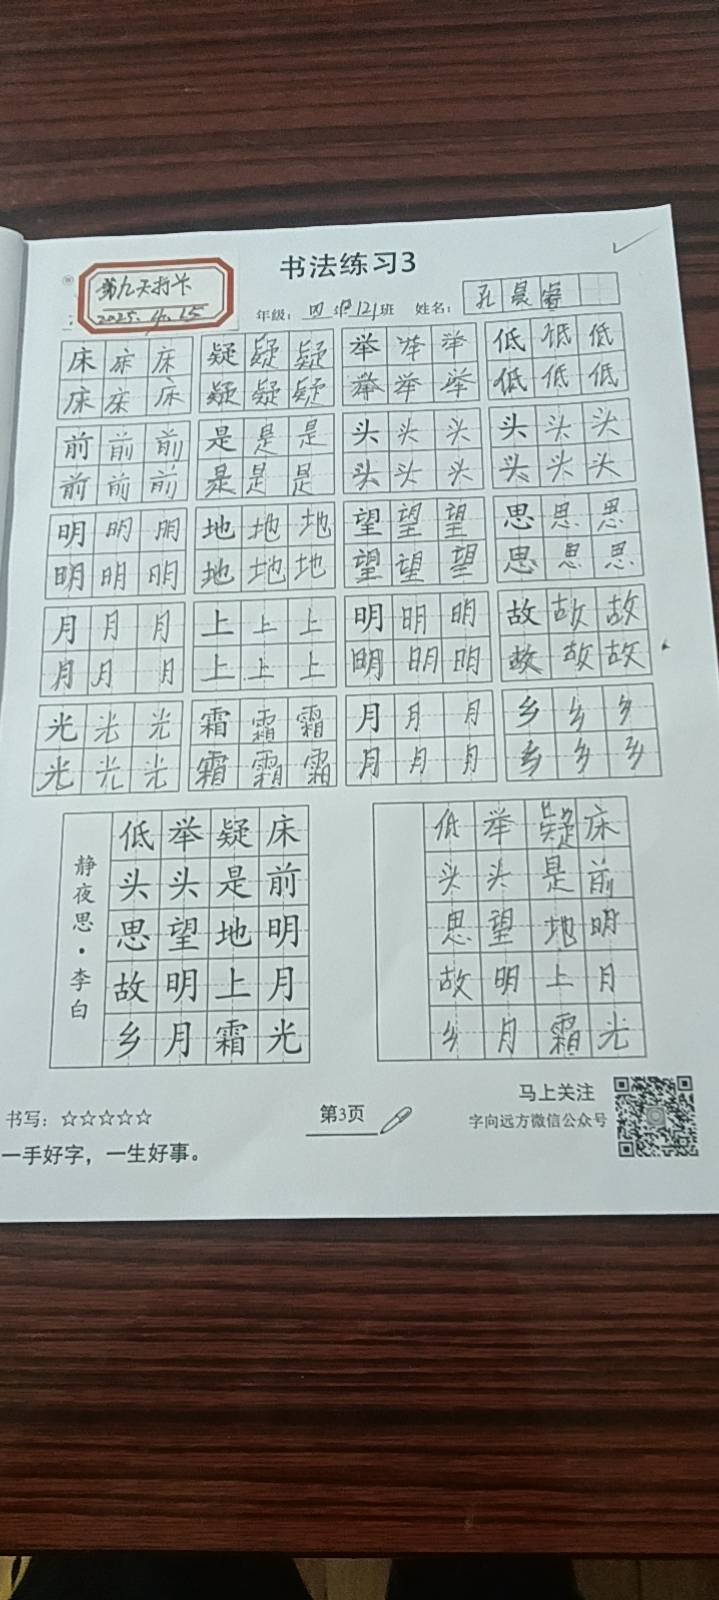 书法练习3
第九天打卡
2025.4.15
年级：四 级 121班 姓名：孔晨睿
床床床 疑疑疑 举举举 低低低
床床床 疑疑疑 举举举 低低低
前前前 是是是 头头头 头头头
前前前 是是是 头头头 头头头
明明明 地地地 望望望 思思思
明明明 地地地 望望望 思思思
月月月 上上上 明明明 故故故
月月月 上上上 明明明 故故故
光光光 霜霜霜 月月月 乡乡乡
光光光 霜霜霜 月月月 乡乡乡
静夜思·李白
床前明月光
疑是地上霜
举头望明月
低头思故乡
床前明月光
疑是地上霜
举头望明月
低头思故乡
书写：☆☆☆☆☆
一手好字，一生好事。
第3页
马上关注
字向远方微信公众号